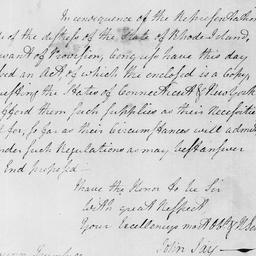 In consequence of the Representation
of the distress of the State of Rhode Island,
want of Provision, Congress have this day
an Act of which the enclosed is a Copy,
requesting the States of Connecticut & New York
afford them such supplies as their necessities
for, so far as their Circumstances will admit
under such Regulations as may best answer
End proposed—
I have the Honor to be Sir
With great Respect
Your Excellencys most Obt & H Ser
John Jay—